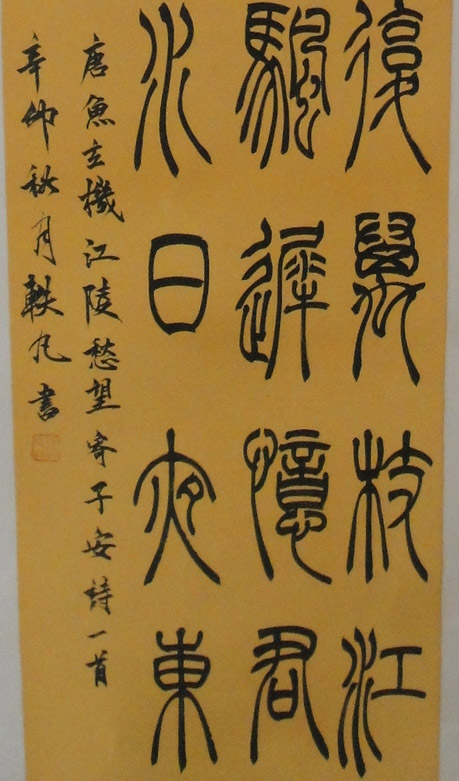 復萬枝江
颿遲憶君
水日夜東
唐魚玄機江陵愁望寄子安詩一首
辛卯秋月軼凡書